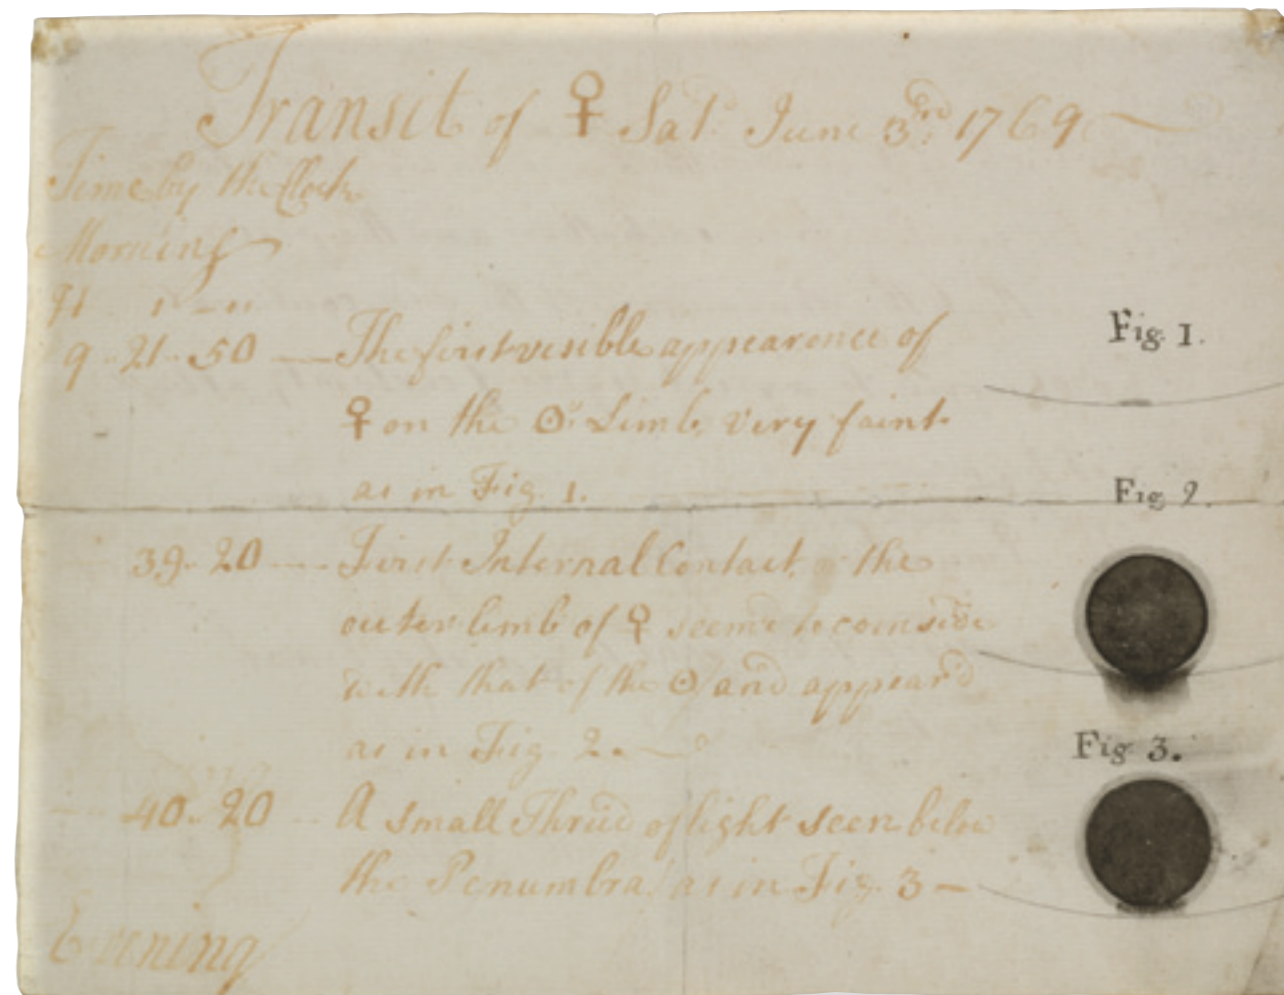 Transit of ♀ Sat. June 3rd. 1769
Time by the Clock
Morning
H ' — "
9 .. 21 .. 50 — The first visible appearance of Fig 1.
♀ on the ☉s Limb, very faint
as in Fig. 1. Fig 2.
39 .. 20 — First Internal Contact, or the
outer limb of ♀ seem'd to coinside
with that of the ☉ and appear'd
as in Fig. 2. Fig 3.
40 .. 20 — A small Thrid of light seen below
the Penumbra as in Fig. 3 —
Evening